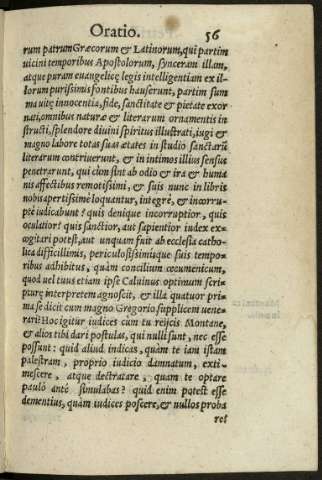 Oratio. 56
rum patrum Græcorum & Latinorum, qui partim
uicini temporibus Apostolorum, synceram illam,
atque puram euangelicę legis intelligentiam ex il-
lorum purissimis fontibus hauserunt, partim sum
ma uitę innocentia, fide, sanctitate & pietate exor
nati, omnibus naturæ & literarum ornamentis in
structi, splendore diuini spiritus illustrati, iugi &
magno labore totas suas ætates in studio sanctarū
literarum contriuerunt, & in intimos illius sensus
penetrarunt, qui cùm sint ab odio & ira & huma
nis affectibus remotissimi, & suis nunc in libris
nobis apertissimè loquantur, integrè, & incorru-
ptè iudicabunt? quis denique incorruptior, quis
oculatior? quis sanctior, aut sapientior iudex ex-
cogitari potest, aut unquam fuit ab ecclesia catho-
lica difficillimis, periculosissimisque suis tempo-
ribus adhibitus, quàm concilium œcumenicum,
quod uel tuus etiam ipse Caluinus optimum scri-
pturę interpretem agnoscit, & illa quatuor pri-
ma se dicit cum magno Gregorio supplicem uene-
rari? Hoc igitur iudices cùm tu reijcis Montane,
& alios tibi dari postulas, qui nulli sunt, nec esse
possunt: quid aliud indicas, quàm te iam istam
palestram, proprio iudicio damnatum, exti-
mescere, atque dectratare, quam te optare
paulò antè simulabas? quid enim potest esse
dementius, quàm iudices poscere, & nullos proba
ret